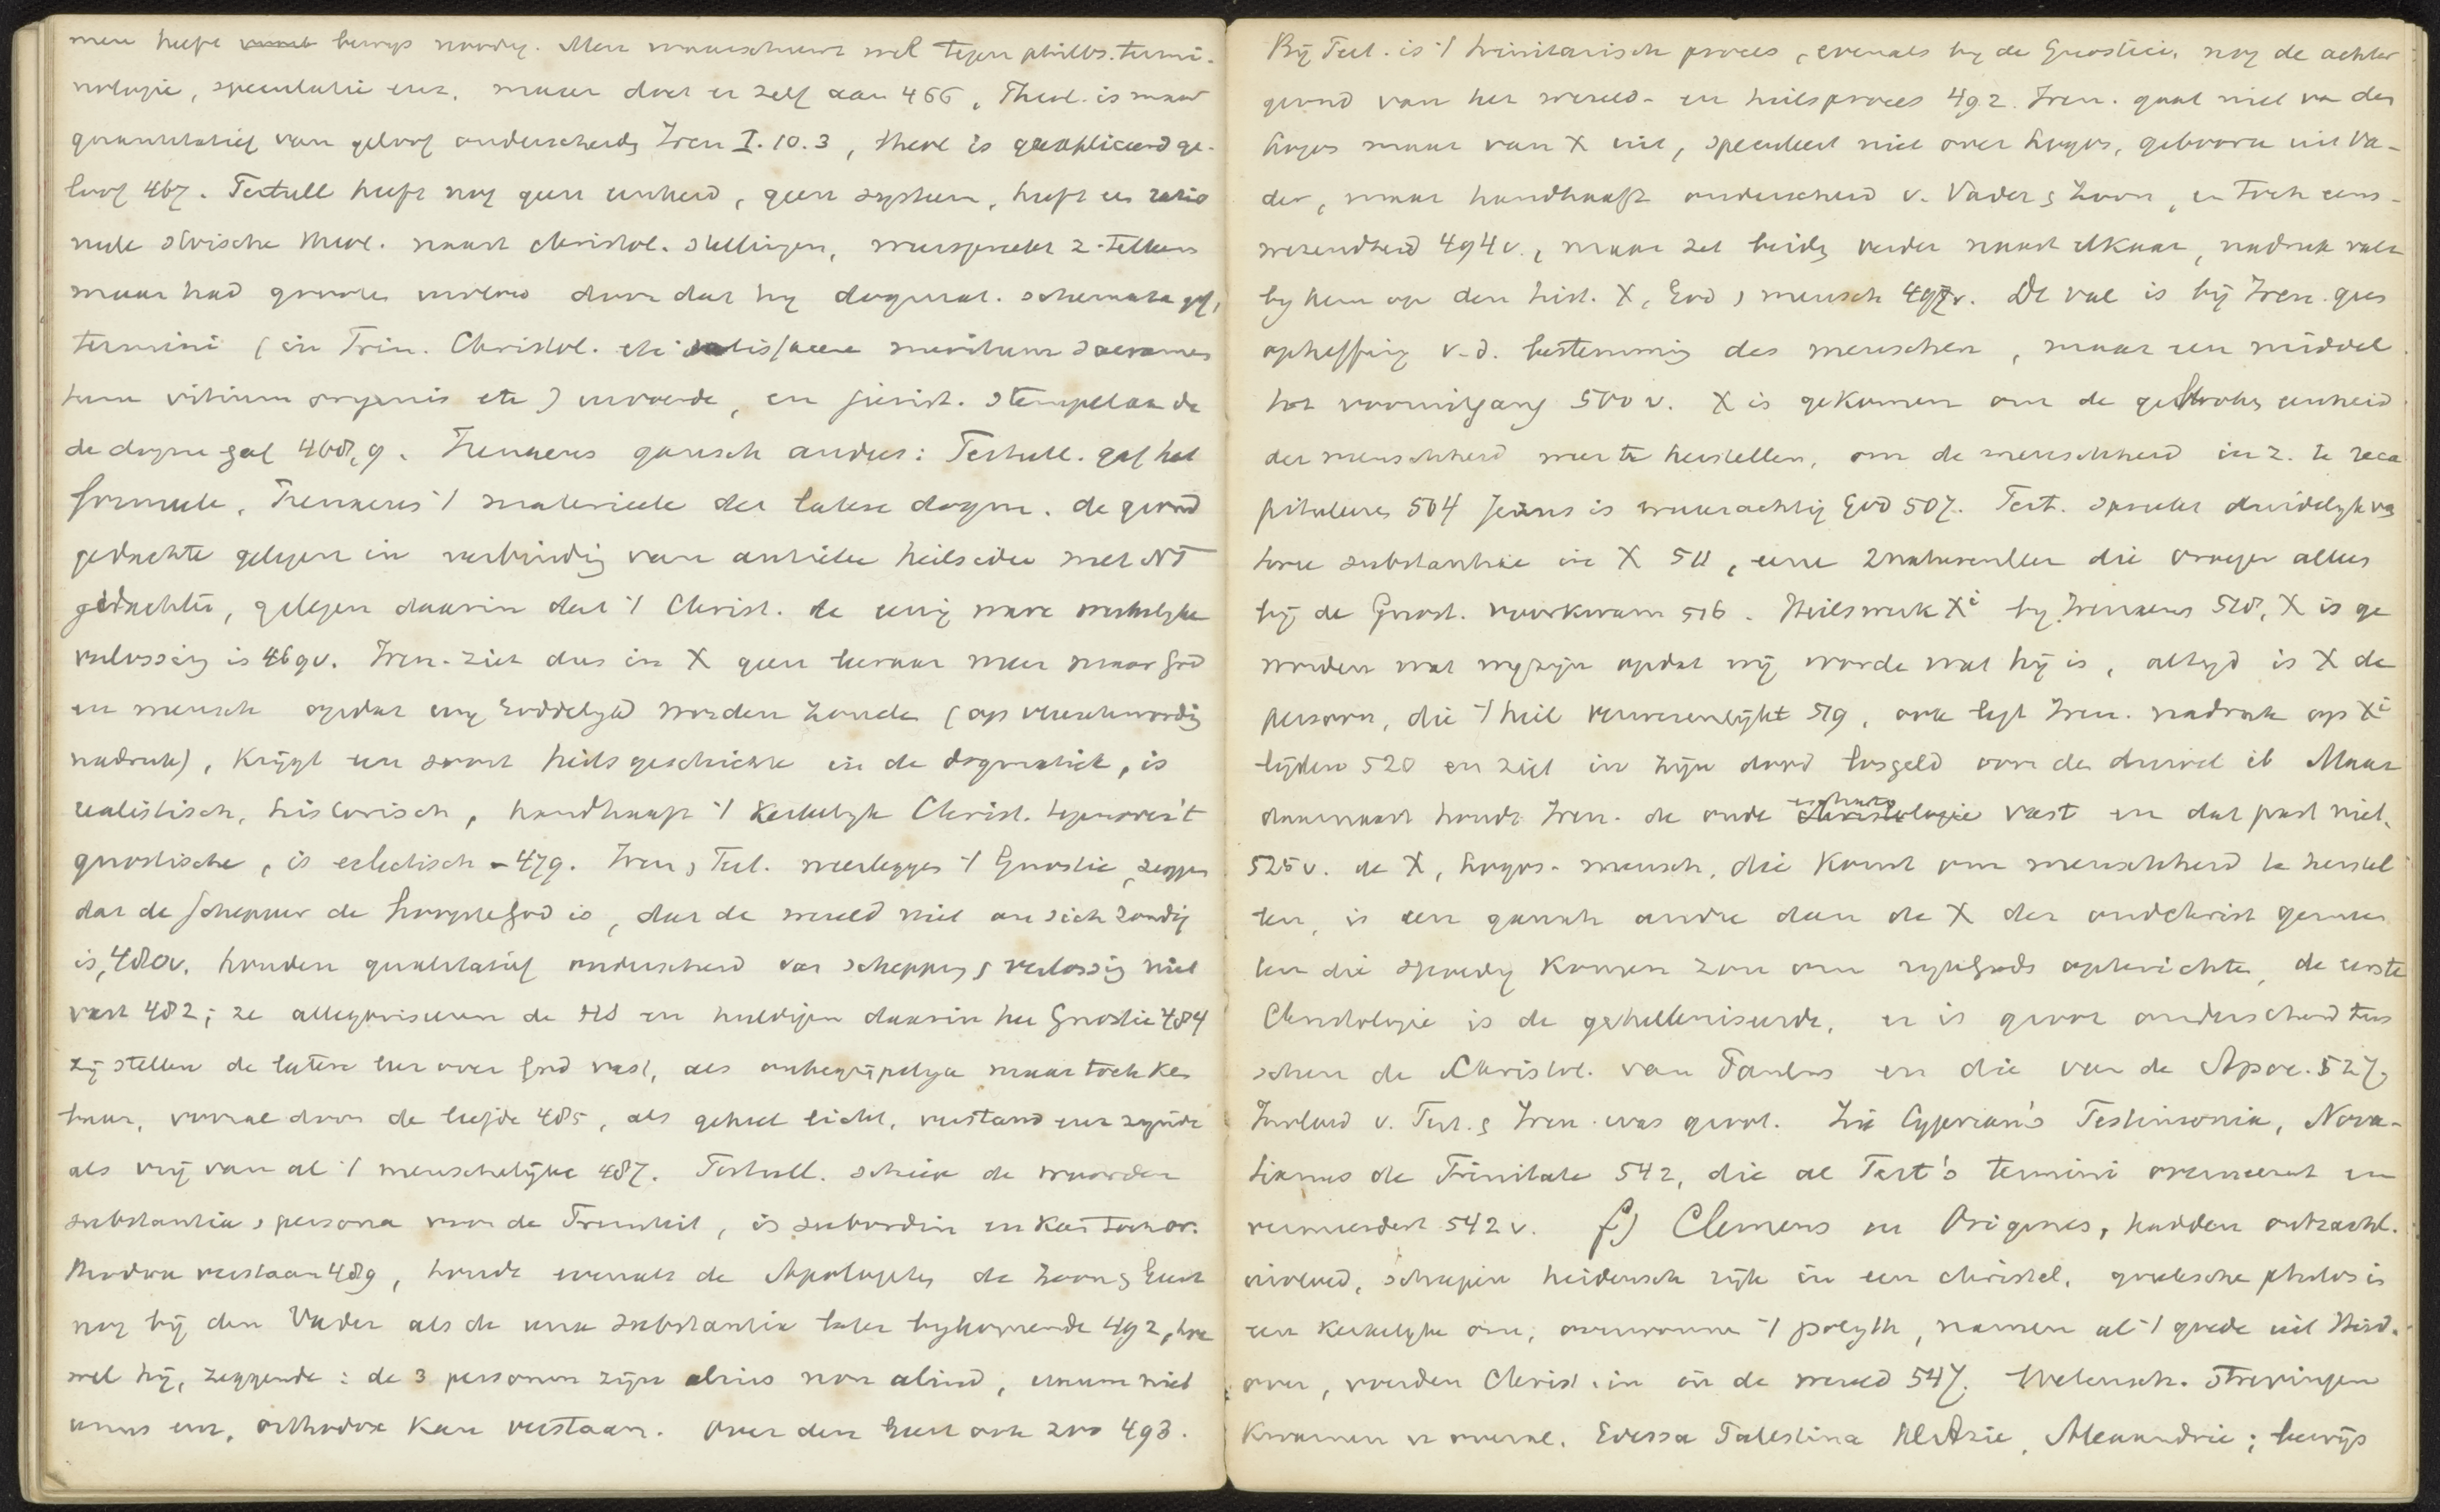 men heeft bewijs noodig. Men waarschuwt wel tegen philos. termi-
nologie, speculatie enz. maar doet er zelf aan 466, Theol. is maar
quantitatief van geloof onderscheidẽ Iren I. 10. 3, theol is geexpliceerd ge-
loof 467. Tertull heeft nog geen eenheid, geen systeem, heeft een ratio
neele stoische theol. naast christol. stellingen, weerspreekt z. telkens
maar had grooten invloed door dat hij dogmat. schemata gaf,
termini (in Trin. Christol. etc satisfacere meritum sacramen
tum vitium originis etc) invoerde, en jurist. stempel aan de
de dogm gaf 468,9. Irenaeus gansch anders: Tertull. gaf het
formeele, Irenaeus 't materieele der latere dogm. de grond
gedachte gelegen in verbinding van antieke heilsidee met NT
gedachten, gelegen daarin dat 't Christ. de eenig ware verlossing is 469v. Iren. ziet dus in X geen leeraar meer maar God
en mensch opdat wij Goddelijk worden zouden (op vleeschwording
nadruk), krijgt een soort heilsgeschichte in de dogmatiek, is
realistisch, historisch, handhaaft 't kerkelijk Christ. tegenover 't
gnostische, is eclectisch - 479. Iren, Tert. weerleggen 't Gnostic, zeggen
dat de schepper de hoogste God is, dat de wereld niet an sich zondig
is, 480v. houden qualitatief onderscheid van schepping & verlossing niet
vast 482; ze allegoriseeren de HS en huldigen daarin hee Gnostic 484
zij stellen de latere leer over God vast, als onbegrijpelijk maar toch ken
baar, vooral door de liefde 485, als geheel licht, verstand enz zijnde
als vrij van al 't menschelijke 487. Tertull. schiep de woorden
substantia, persona voor de Triniteit, is subordin en kan toch or-
thodox verstaan 489, houdt evenals de Apologeten de Zoon & Geest
nog bij den Vader als de una substantia later bijkomende 492, hoe
wel hij, zeggende: de 3 personen zijn alius non aliud, unum niet
unus enz, orthodox kan verstaan. Over den Geest ook zoo 493.
Bij Tert. is 't trinitarisch proces, evenals bij de Gnostici, nog de achter
grond van het wereld- en heilsproces 492. Iren. gaat niet van den
Logos maar van X uit, speculeert niet over Logos, geboren uit Va-
der, maar handhaaft onderscheid v. Vader & Zoon, en toch eens-
wezendheid 494v., maar zet beide verder naast elkaar, nadruk valt
bij hem op den hist. X, God, mensch 497v. De val is bij Iren. geen
opheffing v.d. bestemming des menschen, maar een middel
tot vooruitgang 500v. X is gekomen om de gebroken eenheid
der menschheid weer te herstellen, om de menschheid in z. te reca
pituleeren 504 Jezus is waarachtig God 507. Tert. spreekt duidelijk van
twee substantiae in X 511, eene 2naturenleer die vroeger alleen
bij de Gnost. voorkwam 516. Heilswerk Xi bij Irenaeus 518, X is ge
worden wat wij zijn opdat wij worde wat hij is, altijd is X de
persoon, die 't heil verwezenlijkt 519, ook legt Iren. nadruk op Xi
lijden 520 en ziet in zijn dood losgeld voor den duivel ib Maar
daarnaast houdt Iren. de oude eschatologie vast en dat past niet.
525v. de X, Logos-mensch, die komt om menschheid te herstel
len, is een gansch andre dan de X der oudchrist gemeen
ten die spoedig komen zou om rijk Gods opterichten, de eerste
Christologie is de gehelleniseerde, er is groot onderscheid tus
schen de Christol. van Paulus en die van de Apoc. 527.
Invloed v. Tert. & Iren. was groot. Zie Cyprian's Testimonia, Nova-
tianus de Trinitate 542, die al Tert's termini overneemt en
vermeerdert 542v. f) Clemens en Origenes, hadden ontzachl.
invloed, schiepen heidensch rijk in een christel, grieksche philos in
een kerkelijke om, overwonnen 't polyth, namen al 't goede uit Heid.
over, voerden Christ. in in de wereld 547. Wetensch. strevingen
kwamen er overal. Edessa Palestina Kl Azie, Alexandrie; bewijs